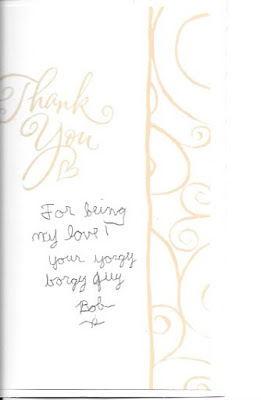 Thank
You
For being
my love!
your yorgy
borgy guy
Bob